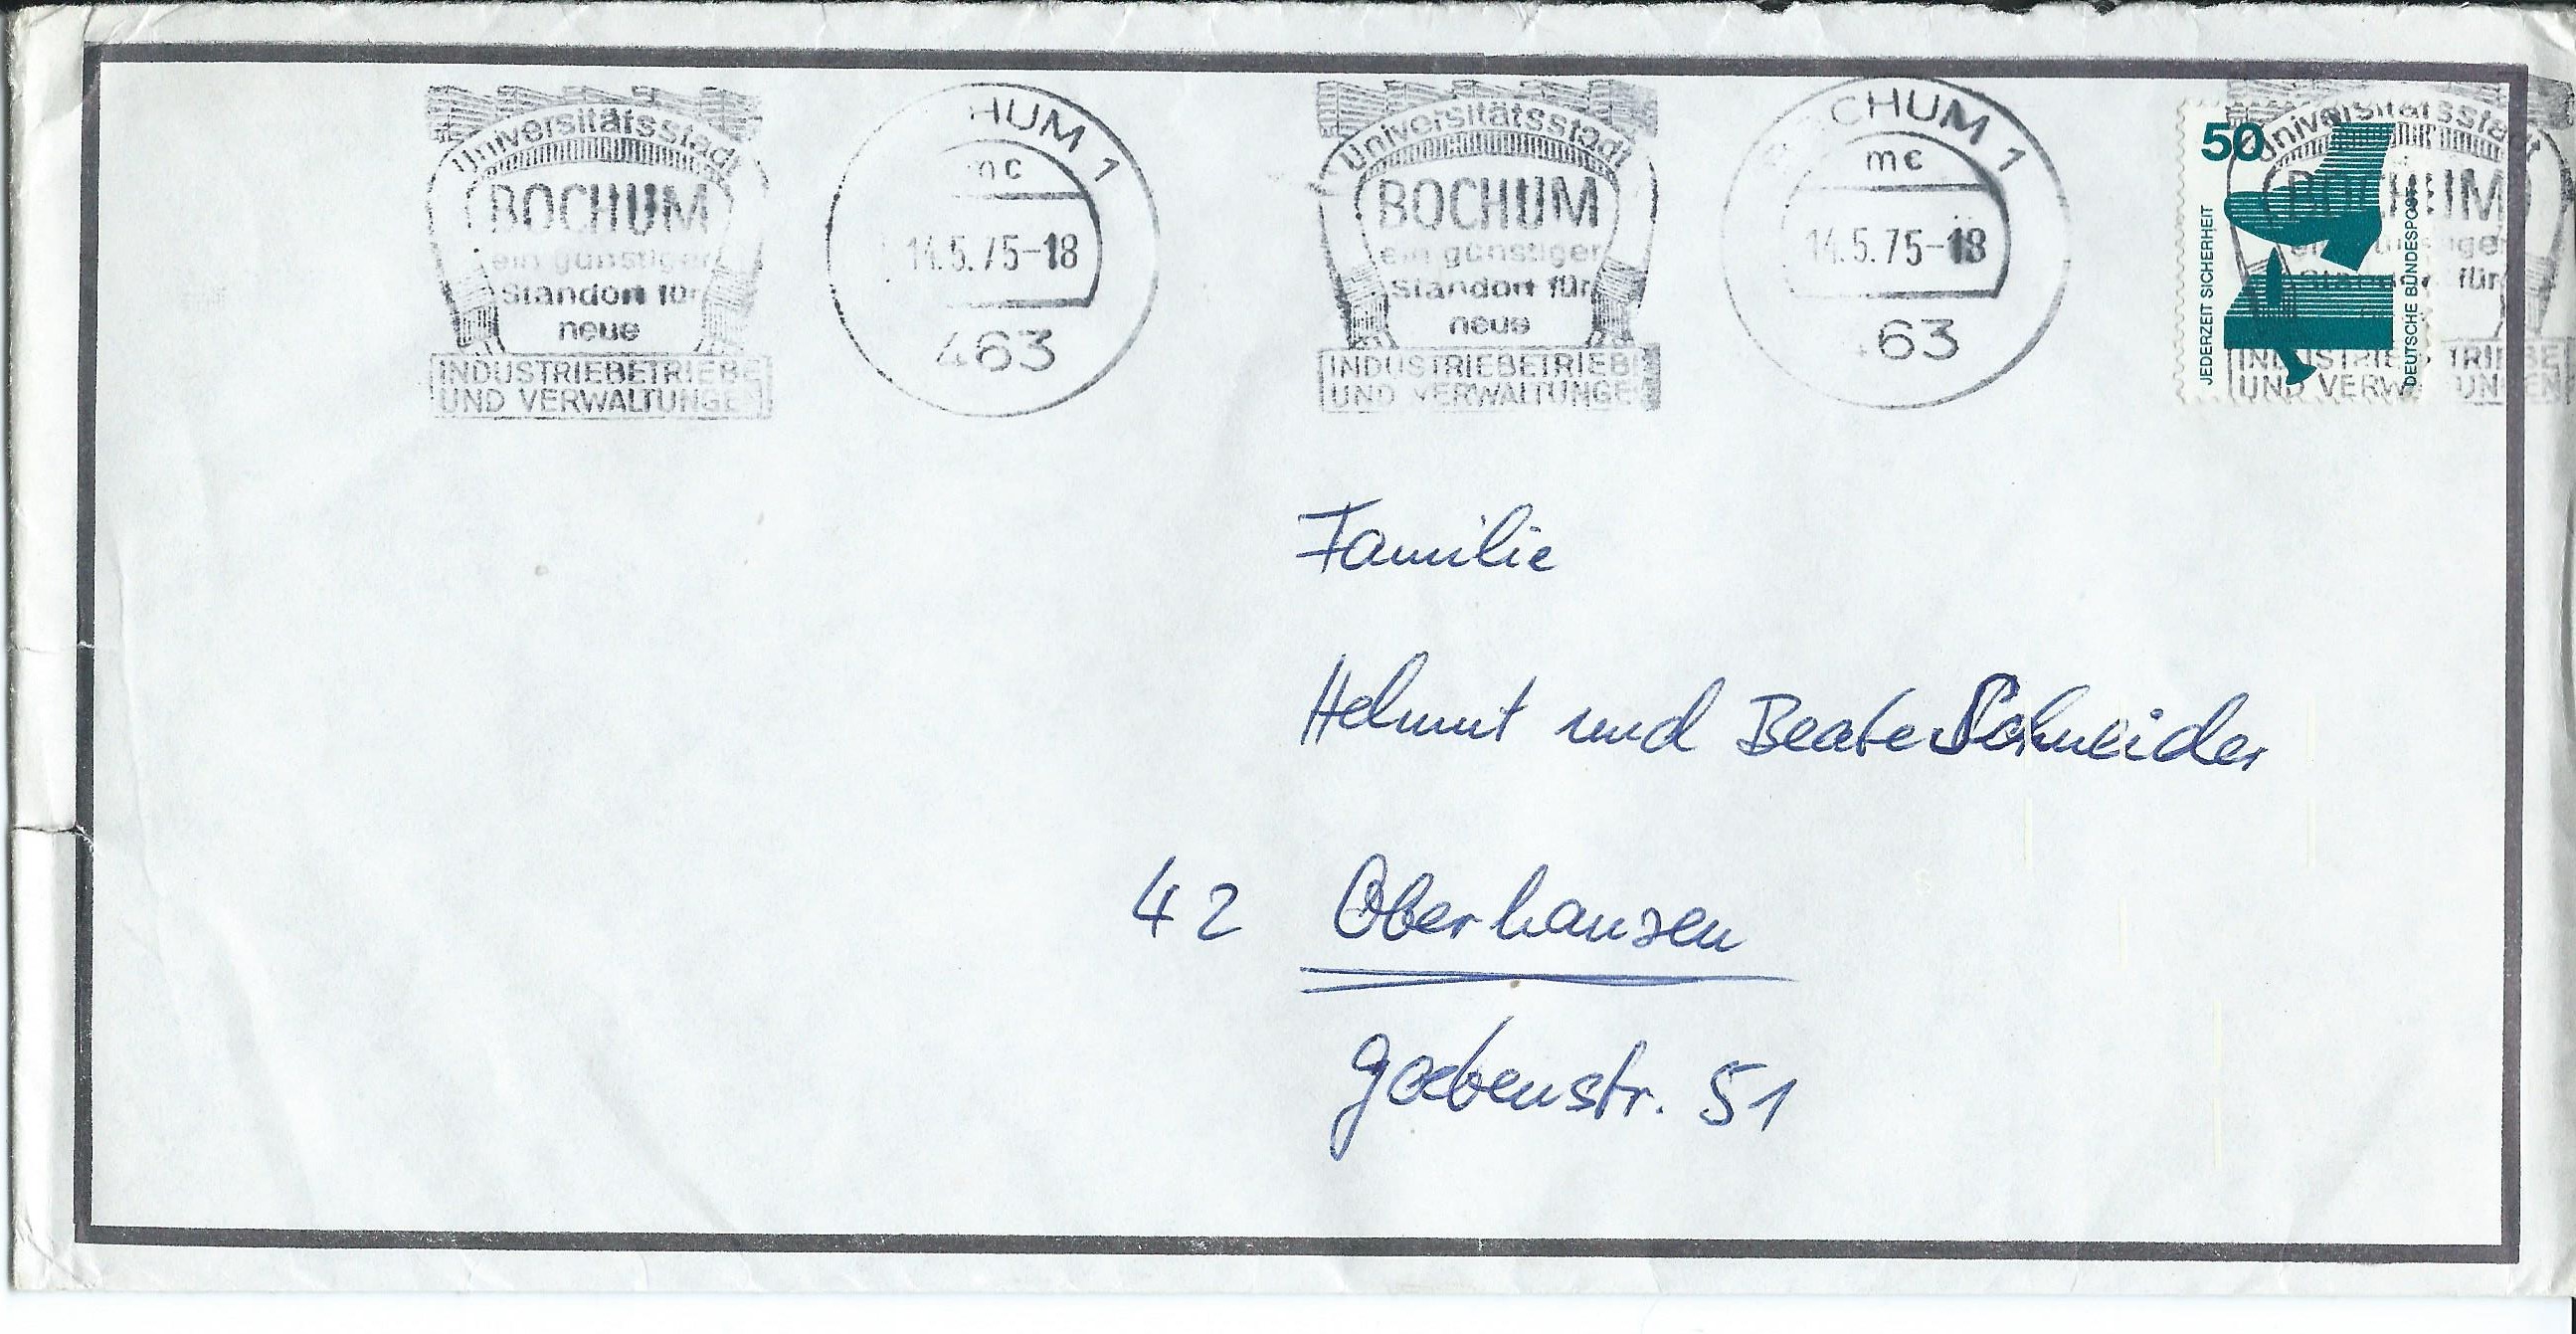 Universitätsstadt
BOCHUM
ein günstiger
Standort für
neue
INDUSTRIEBETRIEBE
UND VERWALTUNGEN
HUM 1
mc
14.5.75-18
463
Universitätsstadt
BOCHUM
ein günstiger
Standort für
neue
INDUSTRIEBETRIEBE
UND VERWALTUNGEN
BOCHUM 1
mc
14.5.75-18
463
50
JEDERZEIT SICHERHEIT
DEUTSCHE BUNDESPOST
Universitätsstadt
BOCHUM
ein günstiger
Standort für
INDUSTRIEBETRIEBE
UND VERWALTUNGEN
Familie
Helmut und Beate Schneider
42 Oberhausen
Goebenstr. 51